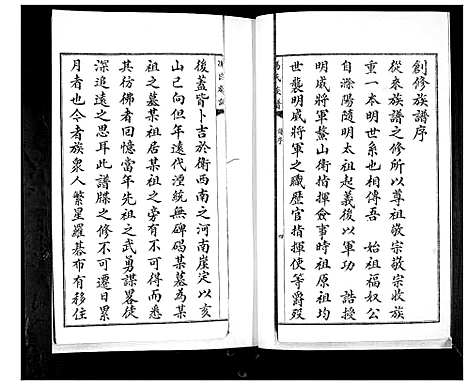 創修族譜序
從來族譜之修所以尊祖敬宗敬宗收族
重一本明世系也相傳吾 始祖福奴公
自滁陽隨明太祖起義後以軍功 誥授
明威將軍鰲山衛指揮僉事時祖原祖均
世襲明威將軍之職歷官指揮使等爵歿
後蓋皆卜吉於衛西南之河南崖定以亥
山巳向但年遠代湮統無碑碣某墓為某
祖之墓某祖居某祖之旁有不得而悉
其彷彿者回憶當年先祖之武勇謀畧徒
深追遠之思耳此譜牒之修不可遷日累
月者也今者族眾人繁星羅碁布有移住